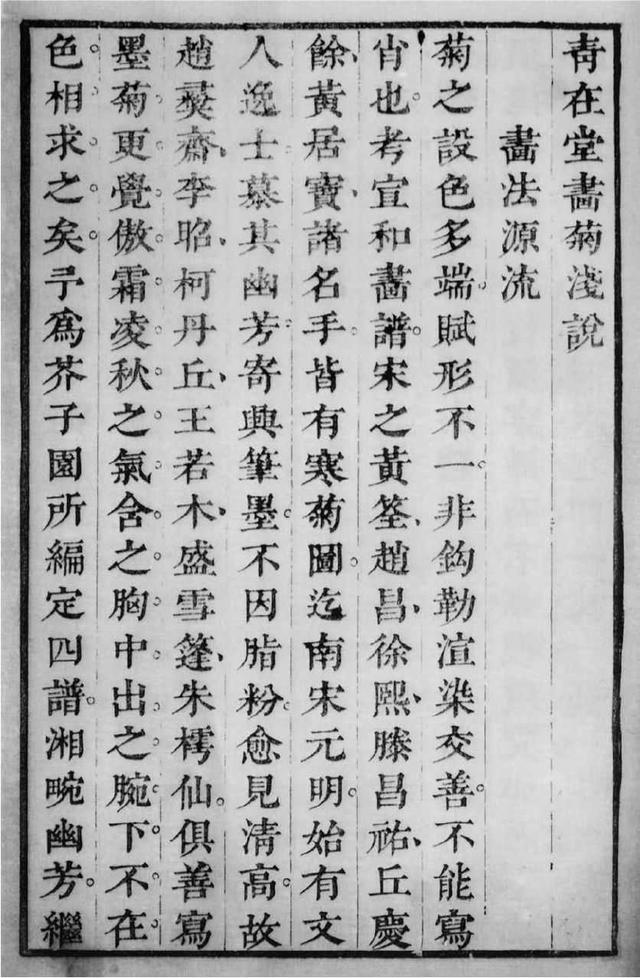 青在堂畫菊淺說
畫法源流
菊之設色多端。賦形不一。非鈎勒渲染交善。不能寫
肖也。考宣和畫譜。宋之黃筌、趙昌、徐熙、滕昌祐、丘慶
餘、黃居寶、諸名手。皆有寒菊圖。迄南宋元明。始有文
人逸士。慕其幽芳。寄興筆墨。不因脂粉。愈見清高。故
趙彛齋、李昭、柯丹丘、王若木、盛雪篷、朱樗仙。俱善寫
墨菊。更覺傲霜凌秋之氣。含之胸中。出之腕下。不在
色相求之矣。予爲芥子園所編定四譜。湘畹幽芳。繼